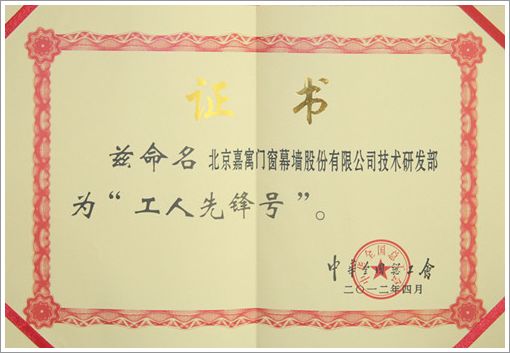 证书
兹命名 北京嘉寓门窗幕墙股份有限公司技术研发部
为“工人先锋号”。
中华全国总工會
二〇一二年四月